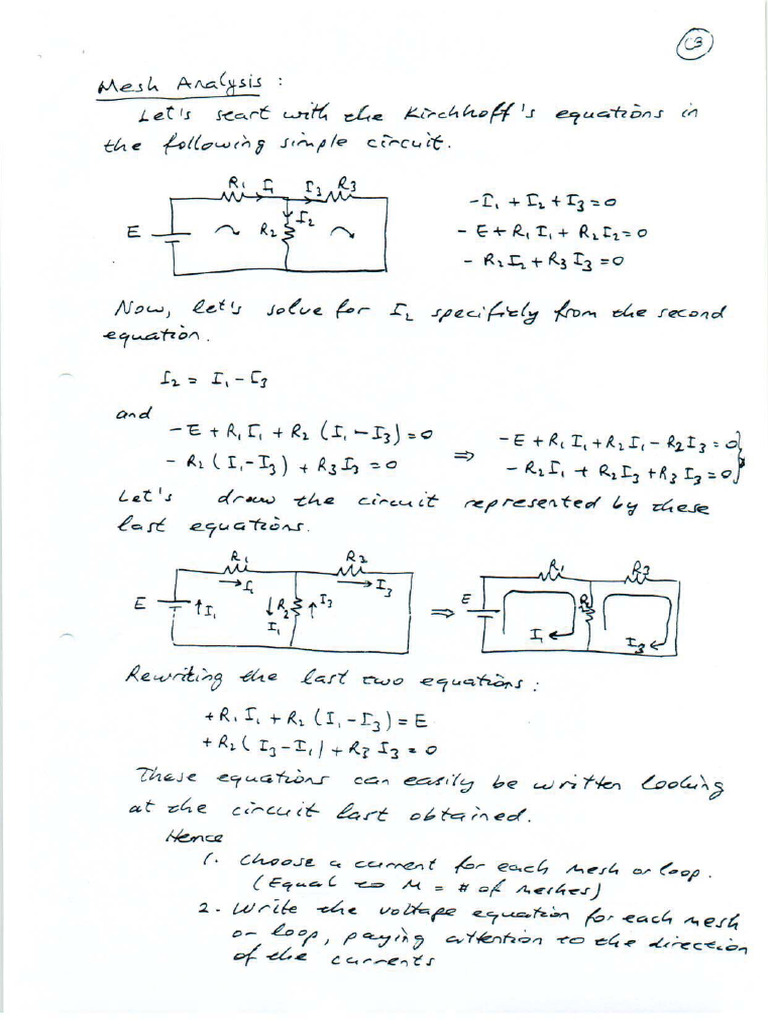 C3
Mesh Analysis :
Let's start with the Kirchhoff's equations in
the following simple circuit.
R1 I1 I3 R3
E R2 I2
-I1 + I2 + I3 = 0
- E + R1 I1 + R2 I2 = 0
- R2 I2 + R3 I3 = 0
Now, let's solve for I2 specificly from the second
equation.
I2 = I1 - I3
and
- E + R1 I1 + R2 (I1 - I3) = 0
- R2 (I1 - I3) + R3 I3 = 0
⇒
- E + R1 I1 + R2 I1 - R2 I3 = 0
- R2 I1 + R2 I3 + R3 I3 = 0
Let's draw the circuit represented by these
last equations.
R1 R2
I1 I3
E I1 R2 I3
I1
⇒
R1 R3
E R2
I1 I3
Rewriting the last two equations :
+ R1 I1 + R2 (I1 - I3) = E
+ R2 (I3 - I1) + R3 I3 = 0
These equations can easily be written looking
at the circuit last obtained.
Hence
1. Choose a current for each mesh or loop.
(Equal to M = # of meshes)
2. Write the voltage equation for each mesh
or loop, paying attention to the direction
of the currents